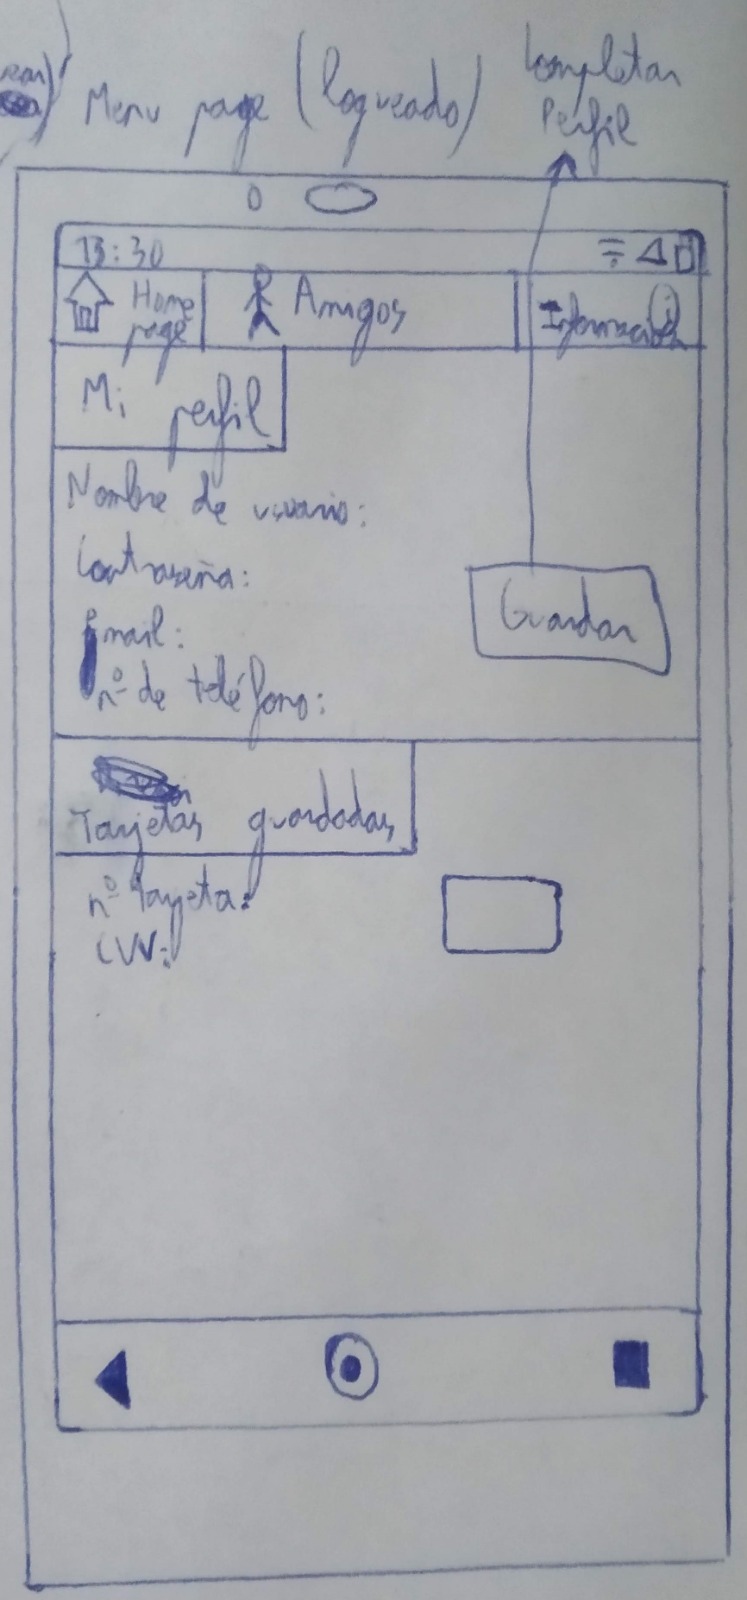 Menu page (logueado)
Completar
Perfil
13:30
Home
page
Amigos
Información
i
Mi perfil
Nombre de usuario:
Contraseña:
Email:
nº de teléfono:
Guardar
Tarjetas guardadas
nº Tarjeta:
CVV: